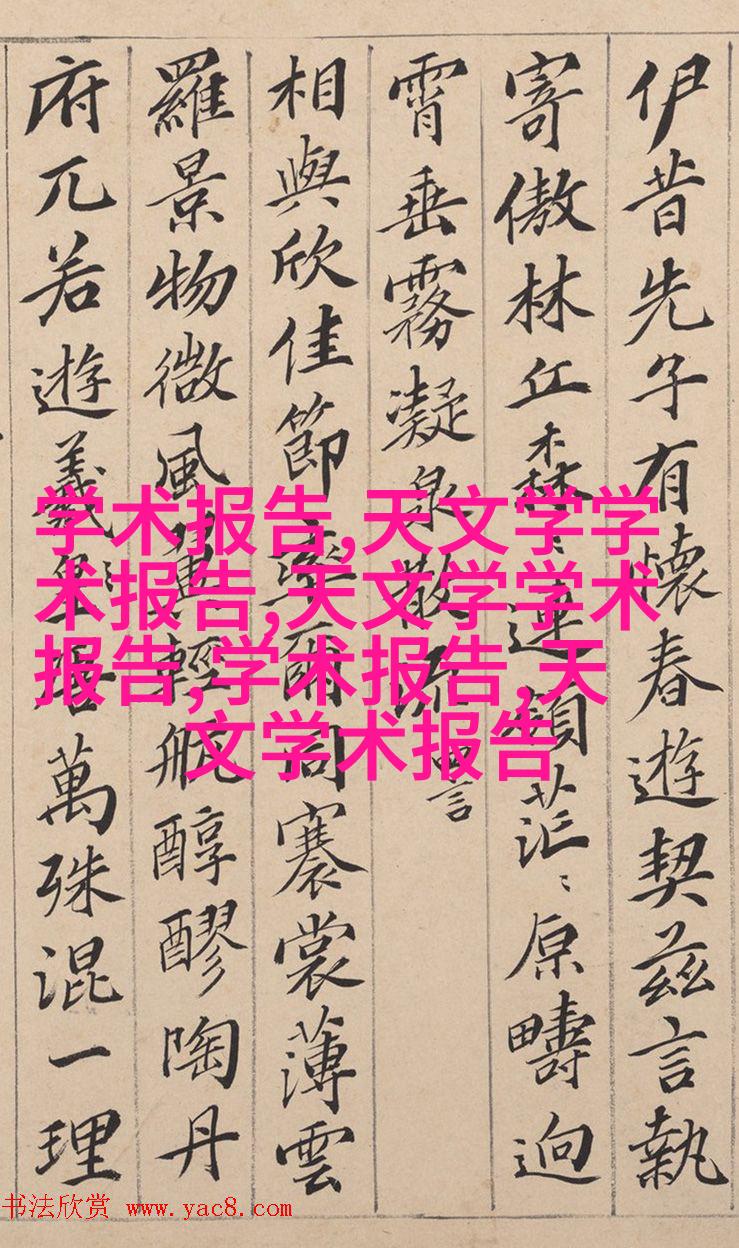 伊昔先子有懷春遊契茲言執
寄傲林丘森ミ連領茫ミ原疇迥
霄垂霧凝泉散流四言
相與欣佳節率爾同褰裳薄雲
羅景物微風翼輕航醇醪陶丹
府兀若遊羲唐萬殊混一理
学术报告,天文学学
术报告,天文学学术
报告,学术报告,天
文学术报告
书法欣赏 www.yac8.com